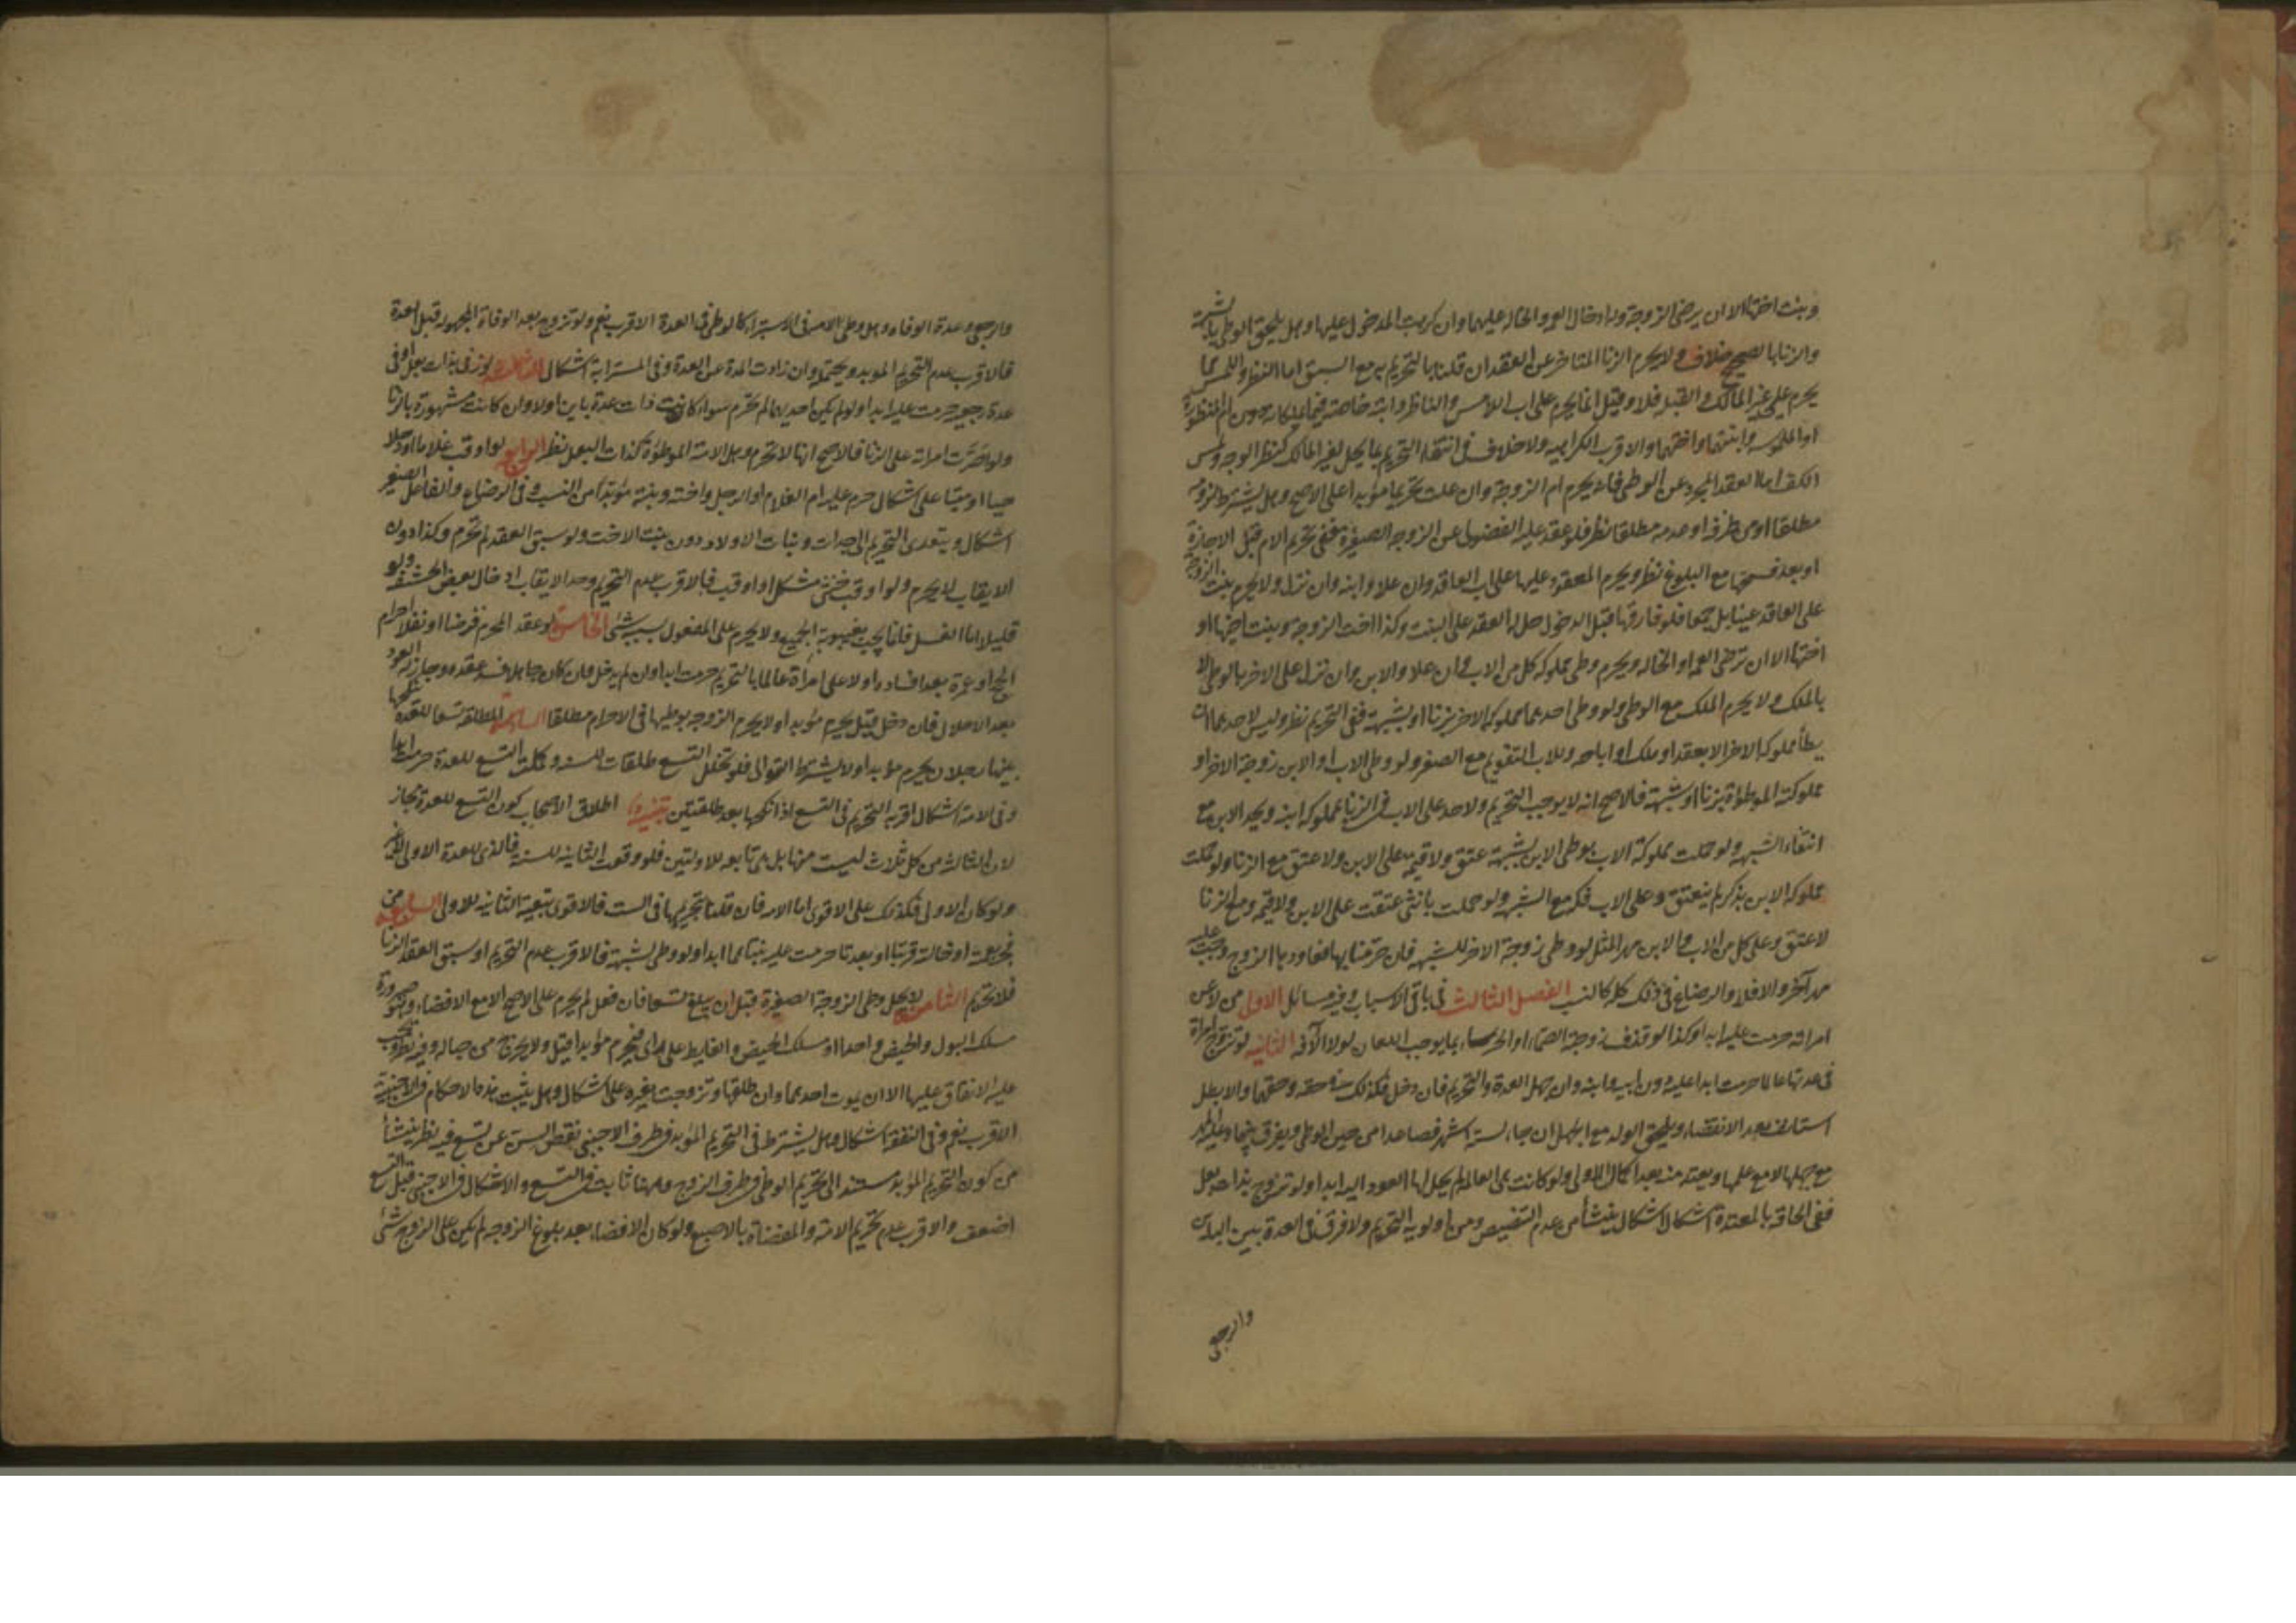 وبنت اختها الا ان يرضى الزوجة وله ادخال العمة والخالة عليهما وان كرهت المدخول عليها وهل يلحق الوطى بالشبهة
والزنا بالصحيح خلاف ولا يحرم الزنا المتاخر عن العقد ان قلنا بالتحريم به مع السبق اما النظر واللمس مما
يحرم على غير المالك والقبلة فلا وقيل انما يحرم على اب اللامس والناظر وابنه خاصة فيما يملكانه دون ام المنظورة
او الملموسة وابنتهما واختهما والاقرب الكراهية ولا خلاف فى انتفاء التحريم بما يحل لغير المالك كنظر الوجه ولمس
الكف اما العقد المجرد عن الوطى فانه يحرم ام الزوجة وان علت تحريما مؤبدا على الاصح وهل يشترط لزومه
مطلقا او من طرفه او عدمه مطلقا نظر فلو عقد عليه الفضولى عن الزوجة الصغيرة ففى تحريم الام قبل الاجازة
او بعد فسخها مع البلوغ نظر ويحرم المعقود عليها على اب العاقد وان علا وابنه وان نزل ولا يحرم بنت الزوجة
على العاقد عينا بل جمعا فلو فارقها قبل الدخول حل له العقد على البنت وكذا اخت الزوجة وبنت اخيها او
اختها الا ان ترضى العمة او الخالة ويحرم وطى مملوكة كل من الاب وان علا والابن وان نزل على الاخر بالوطى لا
بالملك ولا يحرم الملك مع الوطى ولو وطى احدهما مملوكة الاخر بزنا او بشبهة ففى التحريم نظر وليس لاحدهما ان
يطأ مملوكة الاخر الا بعقد او ملك او اباحه وللاب التقويم مع الصغر ولو وطى الاب او الابن زوجة الاخر او
مملوكته الموطوءة بزنا او شبهة فالاصح انه لا يوجب التحريم ولا حد على الاب فى الزنا بمملوكة ابنه ويحد الابن مع
انتفاء الشبهة ولو حملت مملوكة الاب بوطى الابن لشبهة عتق ولا قيمة على الابن ولا عتق مع الزنا ولو حملت
مملوكة الابن بذكر لم ينعتق وعلى الاب فكه مع الشبهة ولو حملت بانثى عتقت على الابن ولا قيمة ومع الزنا
لا عتق وعلى كل من الاب والابن مهر المثل لو وطى زوجة الاخر للشبهة فان حرمنا بها فعاودها الزوج وجب عليه
مهر آخر والافلا والرضاع فى ذلك كله كالنسب الفصل الثالث فى باقى الاسباب وفيه مسائل الاولى من لاعن
امراته حرمت عليه ابدا وكذا لو قذف زوجته الصماء او الخرساء بما يوجب اللعان لولا الآفة الثانية لو تزوج امراة
فى عدتها عالما حرمت ابدا عليه دون ابيه وابنه وان جهل العدة والتحريم فان دخل فكذلك فى حقه وحقهما والا بطل
استانف بعد الانقضاء ويلحق الولد مع الجهل ان جاء لستة اشهر فصاعدا من حين الوطى ويفرق بينهما وعليه المهر
مع جهلها لا مع علمها ويعتد منه بعد اكمال الاولى ولو كانت هى العالمة لم يحل لها العود اليه ابدا ولو تزوج بذات بعل
ففى الحاقه بالمعتدة اشكال اشكال ينشأ من عدم التنصيص ومن اولوية التحريم ولا فرق فى العدة بين البائن
والرجعى
والرجعى وعدة الوفاة وهل وطى الامة فى الاستبراء كالوطى فى العدة الاقرب نعم ولو تزوج بعد الوفاة المجهولة قبل العدة
فالاقرب عدم التحريم الموبد ويحتمل وان زادت المدة عن العدة وفى المسترابة اشكال الثالثة لو زنى بذات بعل او فى
عدة رجعية حرمت عليه ابدا ولو لم يكن احديهما لم تحرم سواء كانت ذات عدة باين اولا وان كانت مشهورة بالزنا
ولو اصرت امراته على الزنا فالاصح انها لا تحرم وهل الامة الموطوءة كذات البعل نظر الرابعة لو اوقب غلاما او رجلا
حيا او ميتا على اشكال حرم عليه ام الغلام او الرجل واخته وبنته مؤبدا من النسب وفى الرضاع والفاعل الصغير
اشكال ويتعدى التحريم الى الجدات وبنات الاولاد دون بنت الاخت ولو سبق العقد لم تحرم وكذا دون
الايقاب لا يحرم ولو اوقب خنثى مشكل او اوقب فالاقرب عدم التحريم وحد الايقاب ادخال بعض الحشفة ولو
قليلا اما الغسل فانما يجب بغيبوبة الجميع ولا يحرم على المفعول بسببه شئ الخامسة لو عقد المحرم فرضا او نفلا احرام
الحج او عمرة بعد افساده اولا على امرأة عالما بالتحريم حرمت ابدا وان لم يدخل وان كان جاهلا فسد عقده وجاز له العود
بعد الاحلال فان دخل قيل يحرم مؤبدا ولا يحرم الزوجة بوطيها فى الاحرام مطلقا السادسة المطلقة تسعا للعدة ينكحها
بينها رجلان يحرم مؤبدا ولا يشترط التوالى فلو تخلل التسع طلقات للسنة وكملت التسع للعدة حرمت ابدا
وفى الامة اشكال اقربه التحريم فى التسع اذا نكحها بعد طلقتين تنبيه اطلاق الاصحاب كون التسع للعدة مجاز
لان الثالثة من كل ثلاث ليست منها بل هى تابعه للاولتين فلو وقعت الثانية للسنة فالذى للعدة الاولى لا غير
ولو كان الاولى فكذلك على الاقوى اما الامة فان قلنا بتحريمها فى الست فالاقوى تبعية الثانية للاولى السابعة من
فجر بعمته او خالته قربتا او بعدتا حرمت عليه بنتاهما ابدا ولو وطى لشبهة فالاقرب عدم التحريم او سبق العقد الزنا
فلا تحريم الثامنة لا يحل وطى الزوجة الصغيرة قبل ان يبلغ تسعا فان فعل لم يحرم على الاصح الا مع الافضاء وهو صيرورة
مسلك البول والحيض واحدا او مسلك الحيض والغايط على راى فيحرم مؤبدا قيل ولا يخرج من حباله وفيه نظر ويجب
عليه الانفاق عليها الا ان يموت احدهما وان طلقها وتزوجت بغيره على اشكال وهل يثبت هذه الاحكام فى الاجنبية
الاقرب نعم وفى النفقة اشكال وهل يشترط فى التحريم المؤبد فى طرف الاجنبى نقص السن عن تسع فيه نظر ينشأ
من كون التحريم المؤبد مستند الى تحريم الوطى فى طرف الزوج وههنا ثابت فى التسع والاشكال فى الاجنبى قبل التسع
اضعف والاقرب عدم تحريم الامة والمفضاة بالاصبع ولو كان الافضاء بعد بلوغ الزوجة لم يكن على الزوج شئ